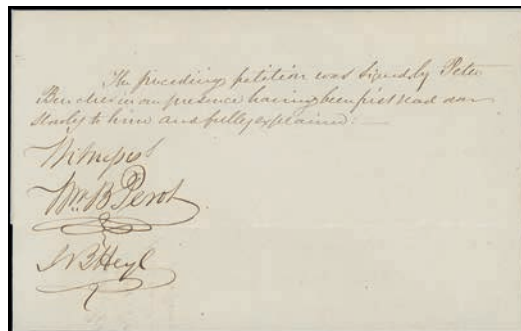 The preceding petition was signed by Peter
in our presence having been first read
to him and fully explained: —
Witness
Wm. B Perot
J B Heyl